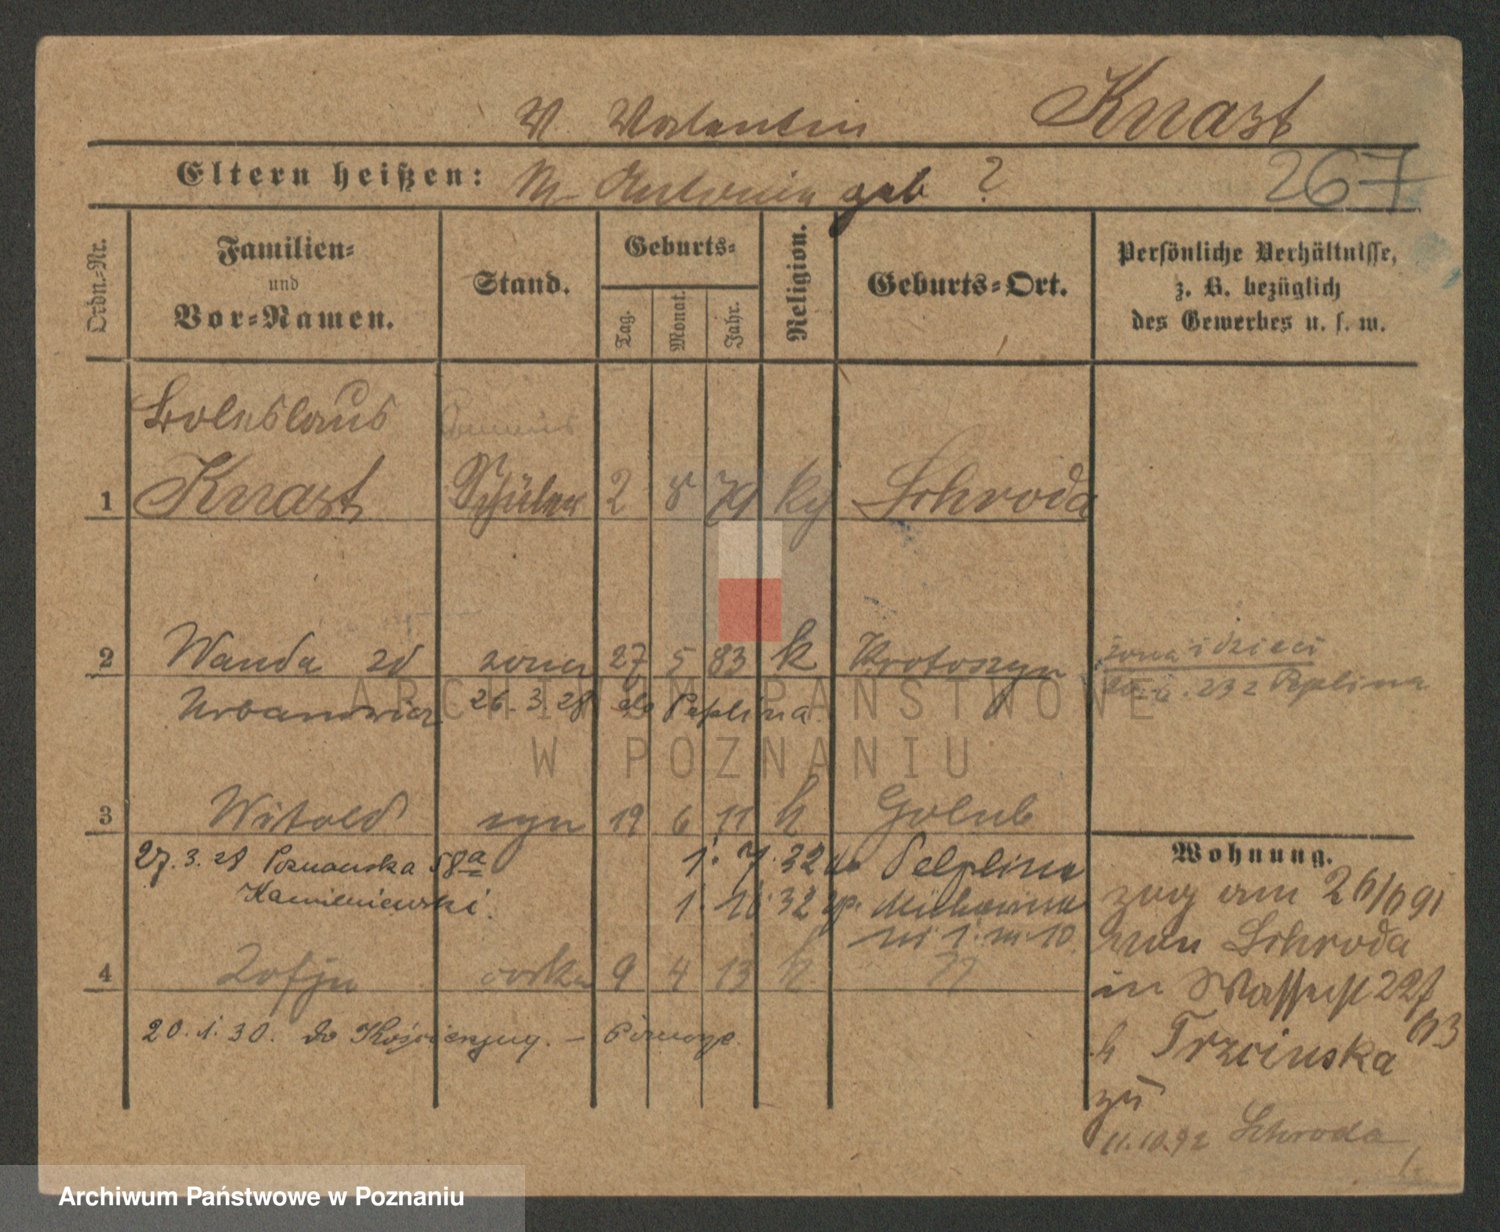 V. Valentin Knast
Eltern heißen: M. Antonia geb ? 267
Ordn.-Nr.
Familien-
und
Vor-Namen.
Stand.
Geburts-
Tag.
Monat.
Jahr.
Religion.
Geburts-Ort.
Persönliche Verhältnisse,
z. B. bezüglich
des Gewerbes u. s. w.
Boleslaus
1 Knast Schüler 2 8 79 k Schroda
2 Wanda zd żona 27 5 83 k Krotoszyn
żona i dzieci
Pelplina
Urbanowicz 26. 3. 28 do Peplina
ARCHIWUM PAŃSTWOWE
W POZNANIU
3 Witold syn 19 6 11 k Golub
27. 3. 28 Poznańska 58a 1. 7. 32 do Pelplina
Kamieniewski. 1. 10 32 sp.
m 10
4 Zofja córka 9 4 13 k "
20. 1. 30. do Kościerzyny. –
Wohnung.
zug am 26/6 91
von Schroda
in Wasserst 227
b Trzcinska
zu
11.10.92 Schroda
Archiwum Państwowe w Poznaniu